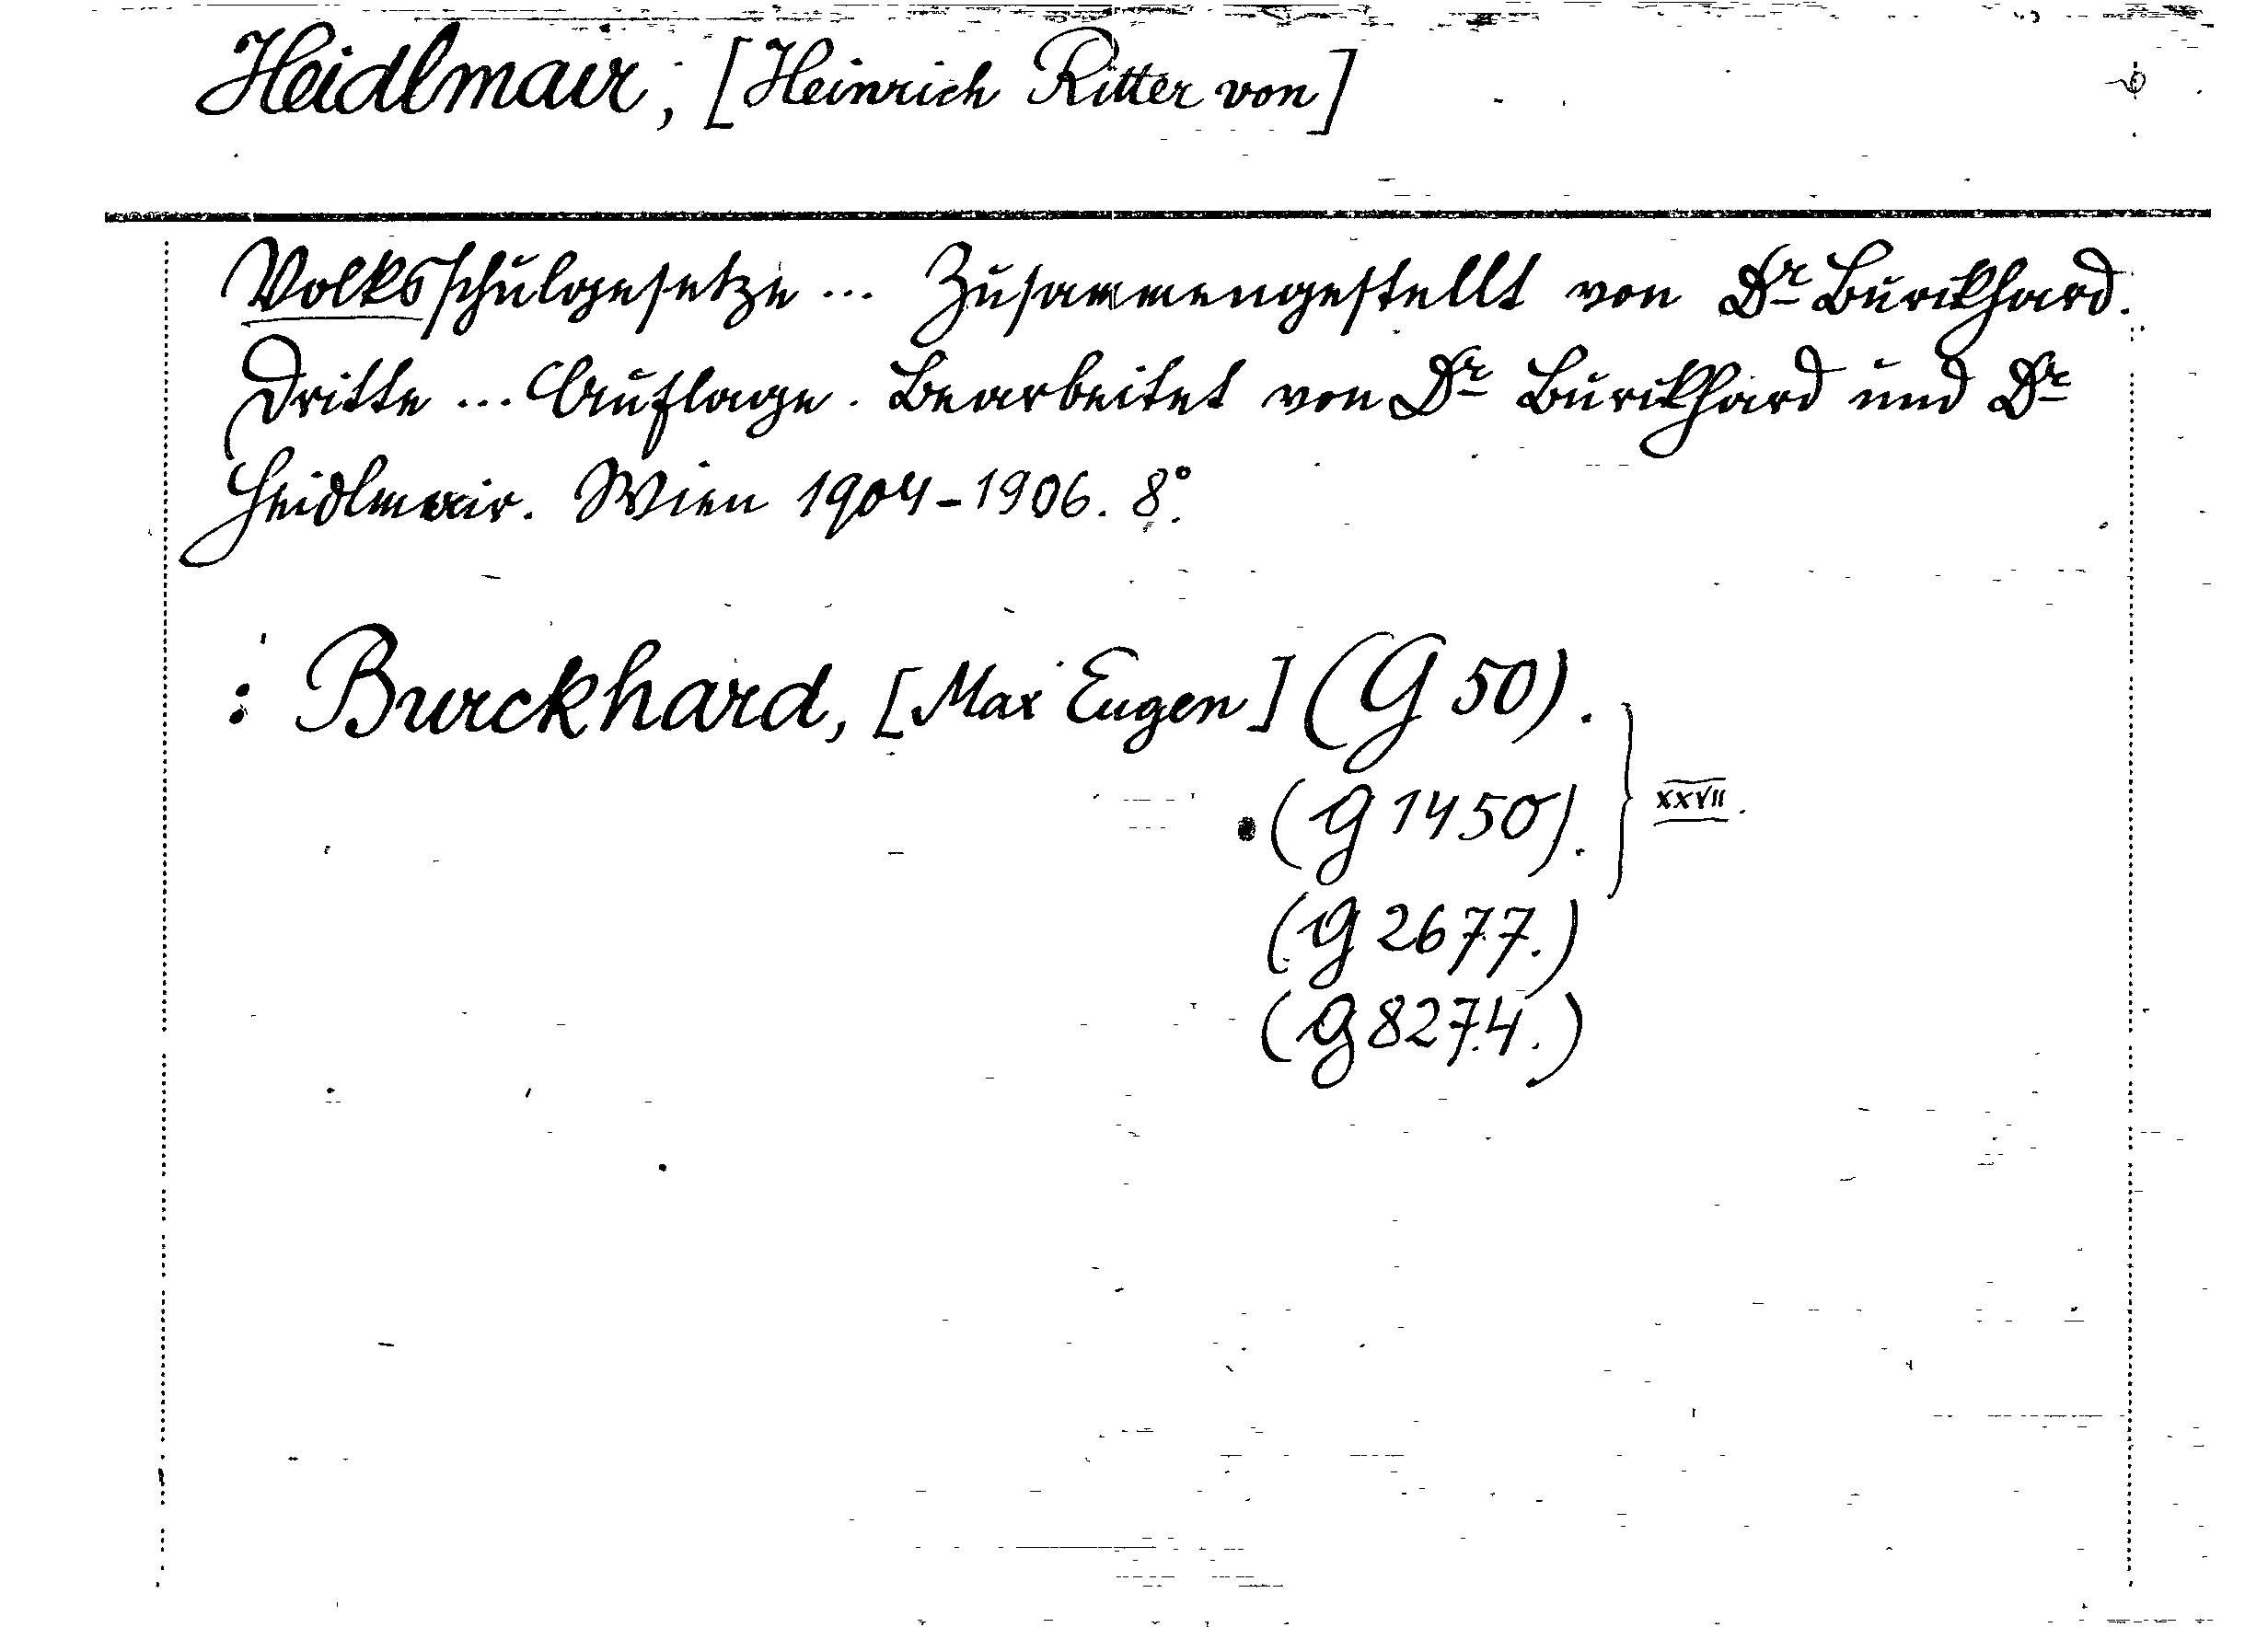 Heidlmair, [Heinrich Ritter von]
Volksschulgesetze ... Zusammengestellt von Dr Burckhard.
Dritte ... Auflage. Bearbeitet von Dr Burckhard und Dr
Heidlmair. Wien 1904-1906. 8°.
: Burckhard, [Max Eugen] (G 50).
(G 1450). } XXVII.
(G 2677.)
(G 8274.)